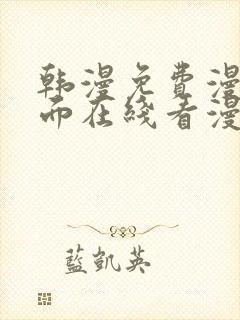 韩漫免费漫
而在线看漫
蓝凯英